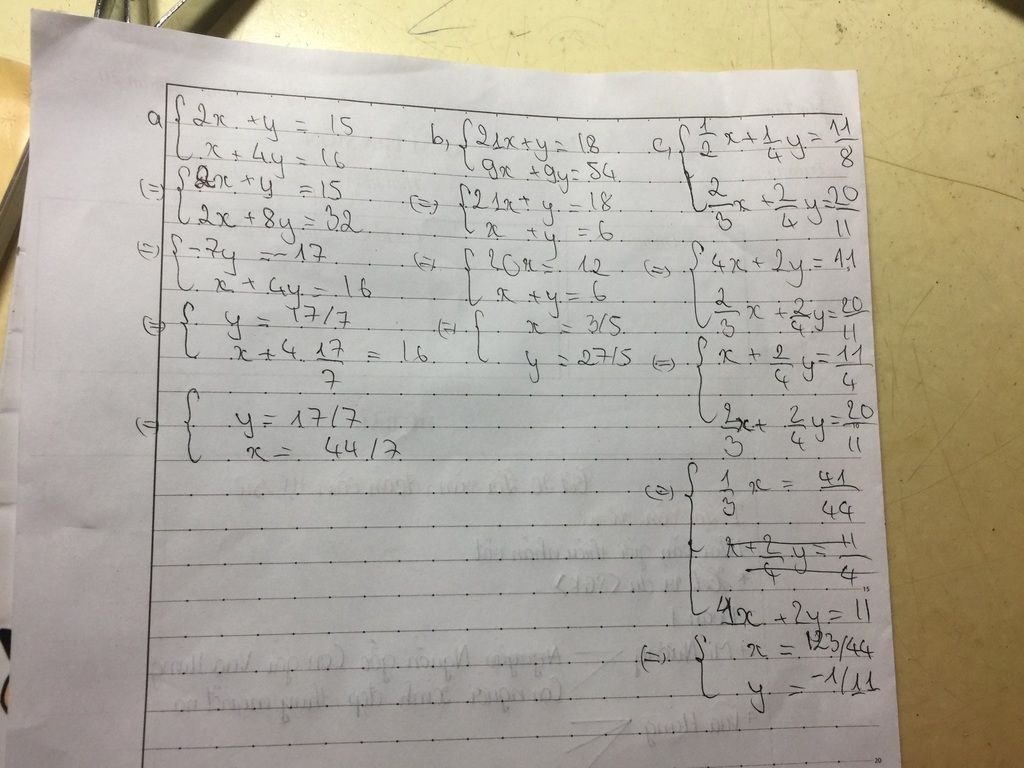 a, { 2x + y = 15
x + 4y = 16
(=) { 2x + y = 15
2x + 8y = 32
(=) { -7y = -17
x + 4y = 16
(=) { y = 17/7
x + 4. 17/7 = 16
(=) { y = 17/7
x = 44/7
b, { 21x + y = 18
9x + 9y = 54
(=) { 21x + y = 18
x + y = 6
(=) { 20x = 12
x + y = 6
(=) { x = 3/5
y = 27/5
c, { 1/2 x + 1/4 y = 11/8
2/3 x + 2/4 y = 20/11
(=) { 4x + 2y = 11
2/3 x + 2/4 y = 20/11
(=) { x + 2/4 y = 11/4
2/3 x + 2/4 y = 20/11
(=) { 1/3 x = 41/44
x + 2/4 y = 11/4
4x + 2y = 11
(=) { x = 123/44
y = -1/11
15
20